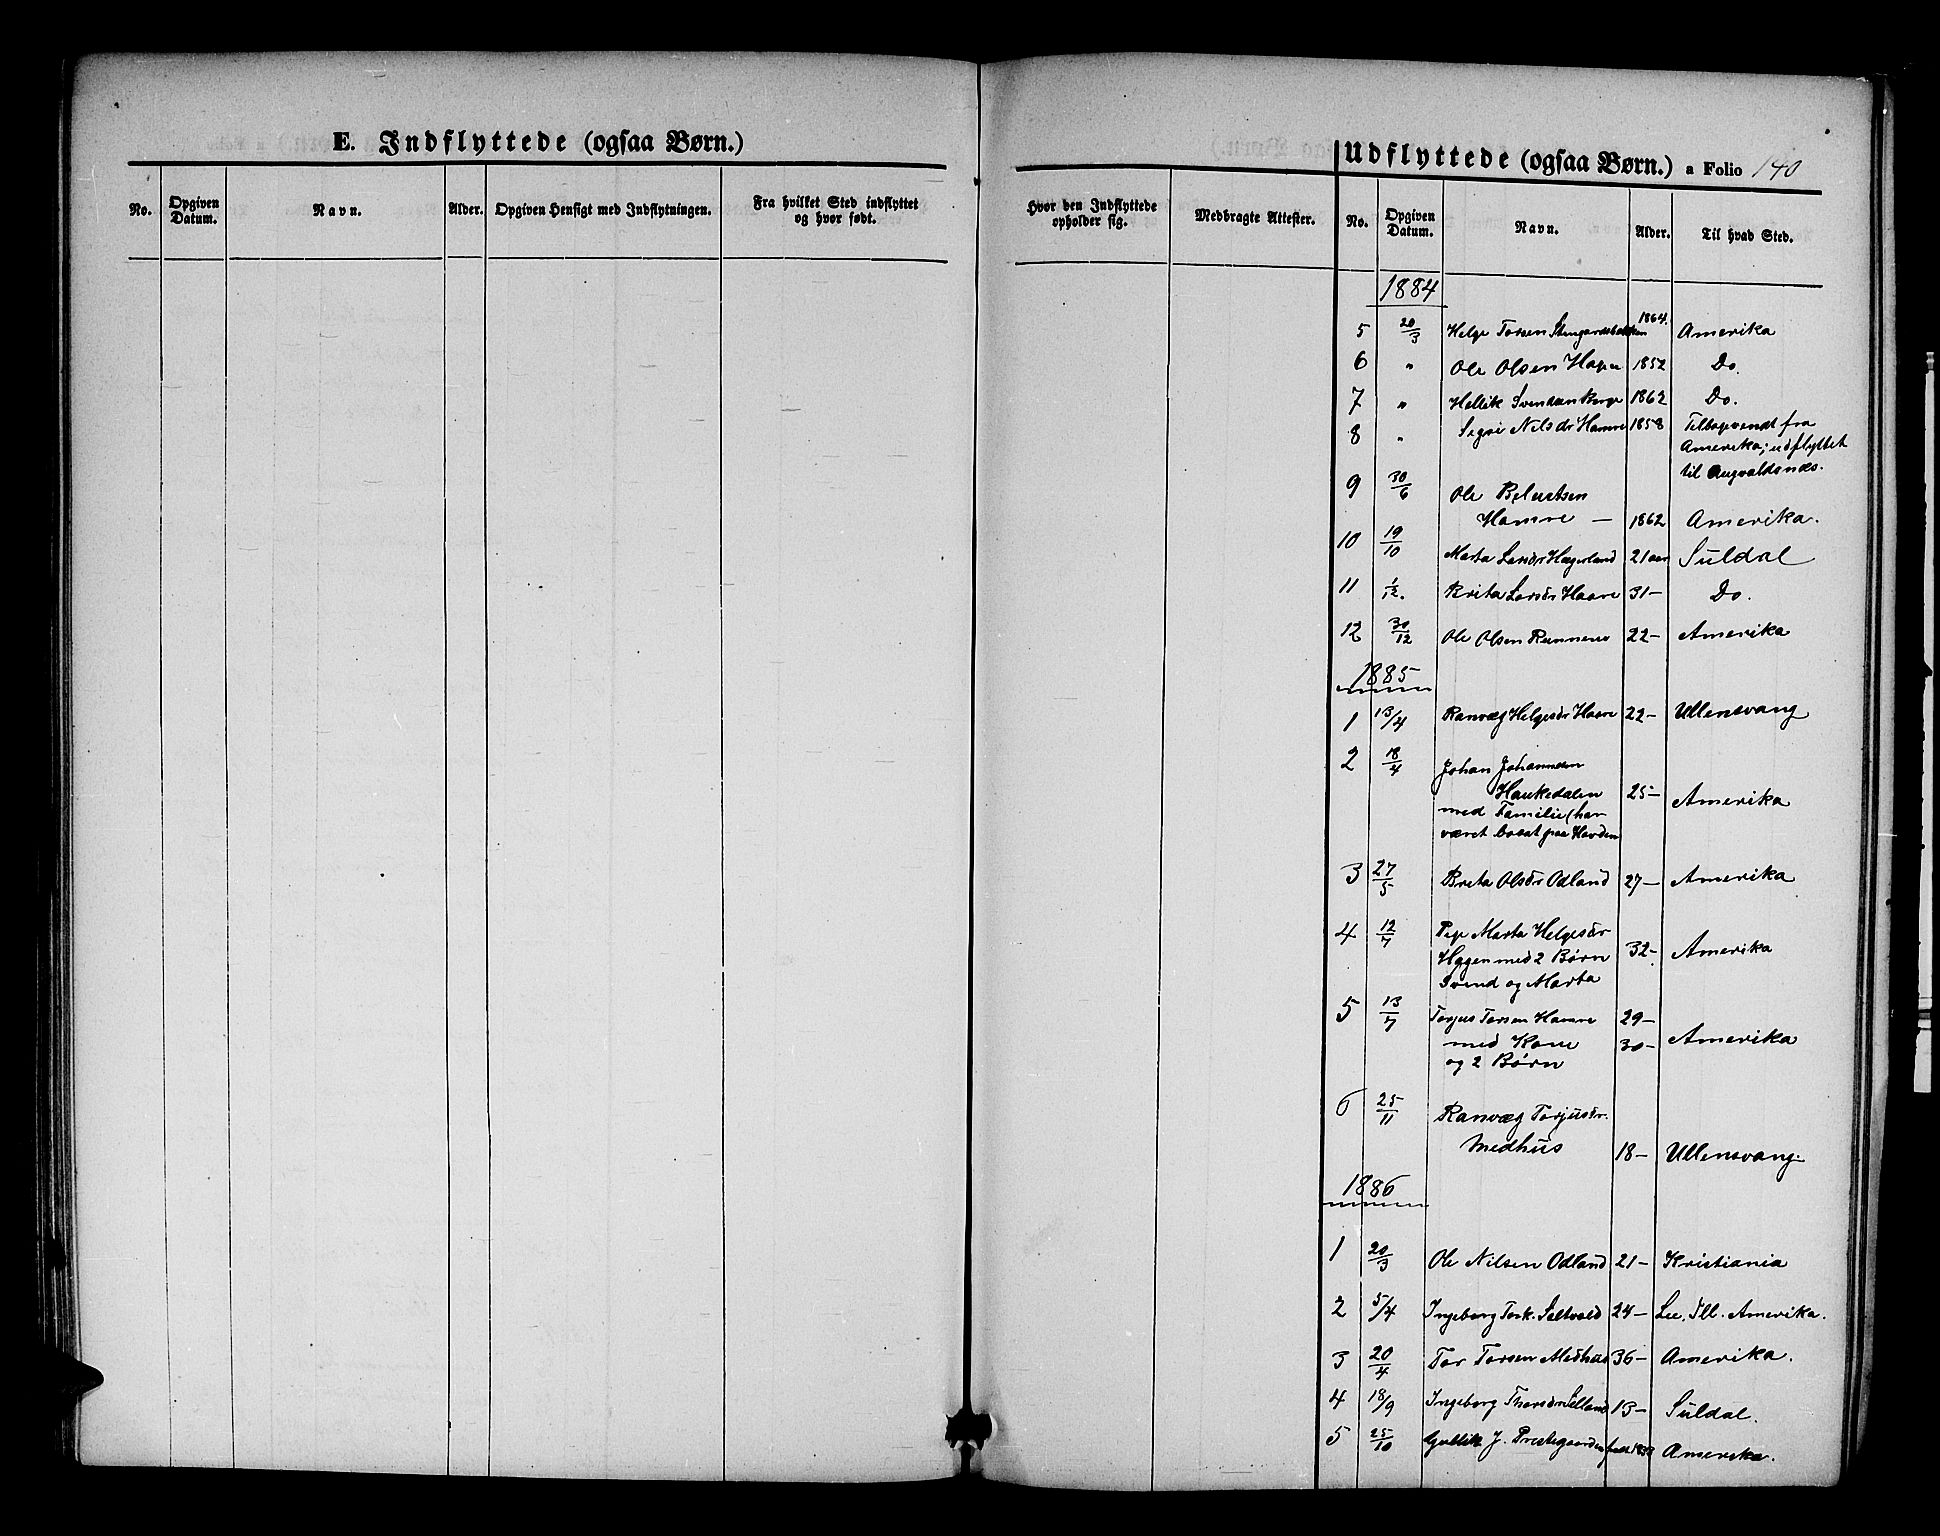 E. Indflyttede (ogsaa Børn.)
No.
Opgiven Datum.
Navn.
Alder.
Opgiven Hensigt med Indflytningen.
Fra hvilket Sted indflyttet og hvor født.
Hvor den Indflyttede opholder sig.
Medbragte Attester.
Udflyttede (ogsaa Børn.) a Folio 140
No.
Opgiven Datum.
Navn.
Alder.
Til hvad Sted.
1884
5 20/3 Helge Torsen 1864. Amerika
6 " Ole Olsen 1852 Do.
7 " Hellik Svendsen Berge 1862 Do.
8 " Sigri Nilsdr Hamre 1858 Tilbagevendt fra
Amerika; udflyttet
til Augvaldsnæs.
9 30/6 Ole
Hamre — 1862 Amerika.
10 19/10 Marta Larsdr Hægerland 21 aar Suldal
11 1/12. Brita Larsdr Haave 31– Do.
12 30/12 Ole Olsen 22– Amerika
1885
1 13/4 Ranvæg Helgesdr Haave 22– Ullensvang
2 18/4 Johan Johannesen
Haukedalen 25– Amerika
med Familie (har
været bosat paa Havden
3 27/5 Brita Olsdr Odland 27– Amerika
4 12/7 Pige Marta Helgesdr
Hagen med 2 Børn 32– Amerika
Svend og Marta
5 13/7 Torjus Torsen Hamre 29–
med Kone 30– Amerika
og 2 Børn
6 25/11 Ranvæg Torjusdr.
Medhus 18– Ullensvang.
1886
1 20/3 Ole Nilsen Odland 21– Kristiania
2 5/4 Ingeborg Tork. 24– Lee, Ill. Amerika.
3 20/4 Tor Torsen Medhus 36– Amerika.
4 18/9 Ingeborg Thorsdr Selland 13– Suldal.
5 25/10 Gullik J. Prestegaarden Amerika.